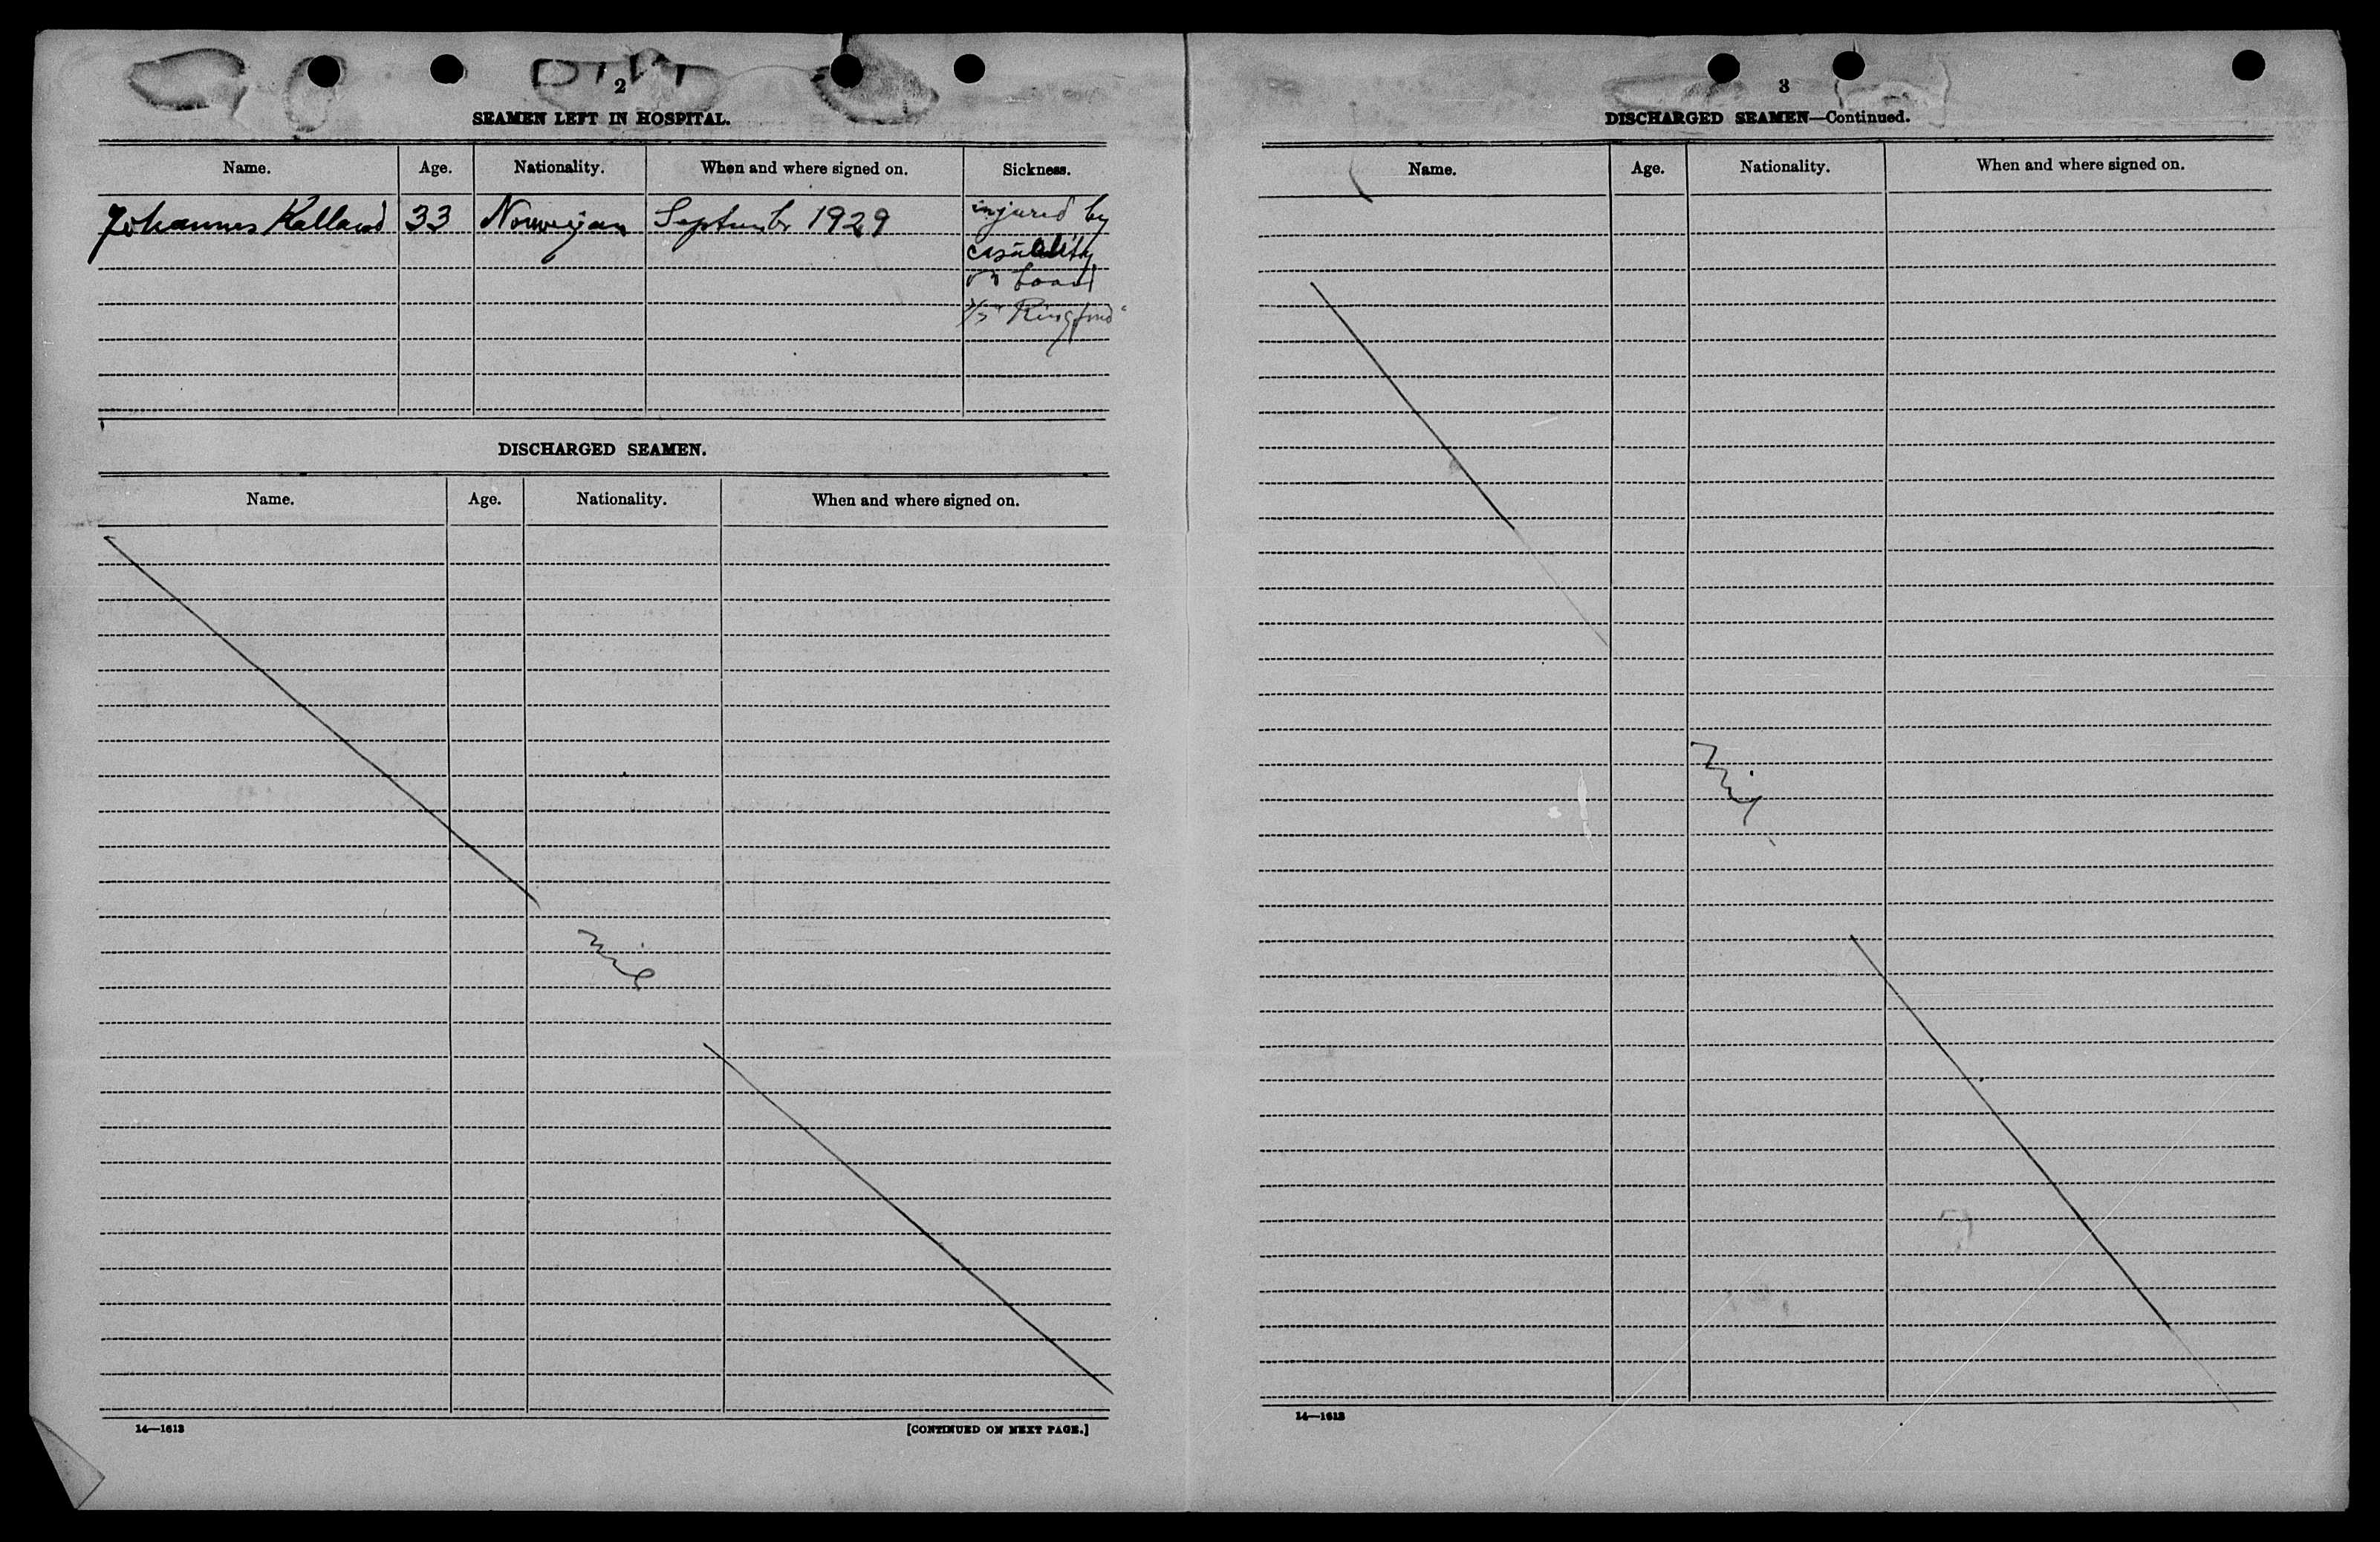 2
SEAMEN LEFT IN HOSPITAL.
Name. Age. Nationality. When and where signed on. Sickness.
Johannes Kalland 33 Norwegian September 1929 injured by
casuality
on board
"Ringfond"
DISCHARGED SEAMEN.
Name. Age. Nationality. When and where signed on.
Nil
14—1613 [CONTINUED ON NEXT PAGE.]
3
DISCHARGED SEAMEN—Continued.
Name. Age. Nationality. When and where signed on.
Nil
14—1613